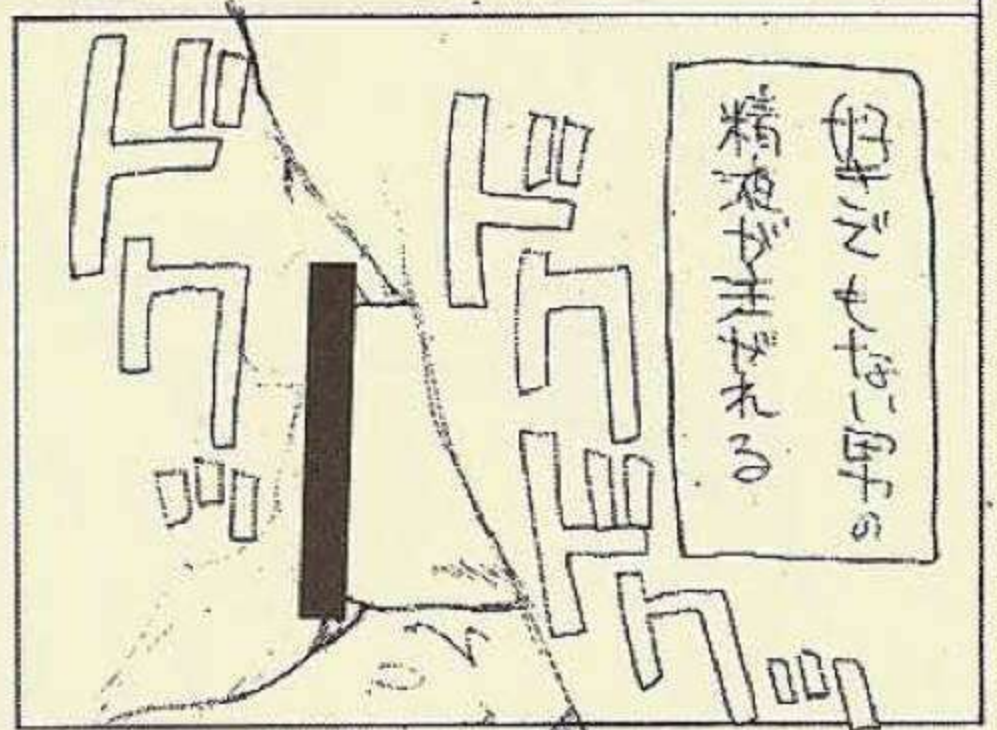 好きでもない男の
精液が注がれる
ドクドクッ
ドクッ